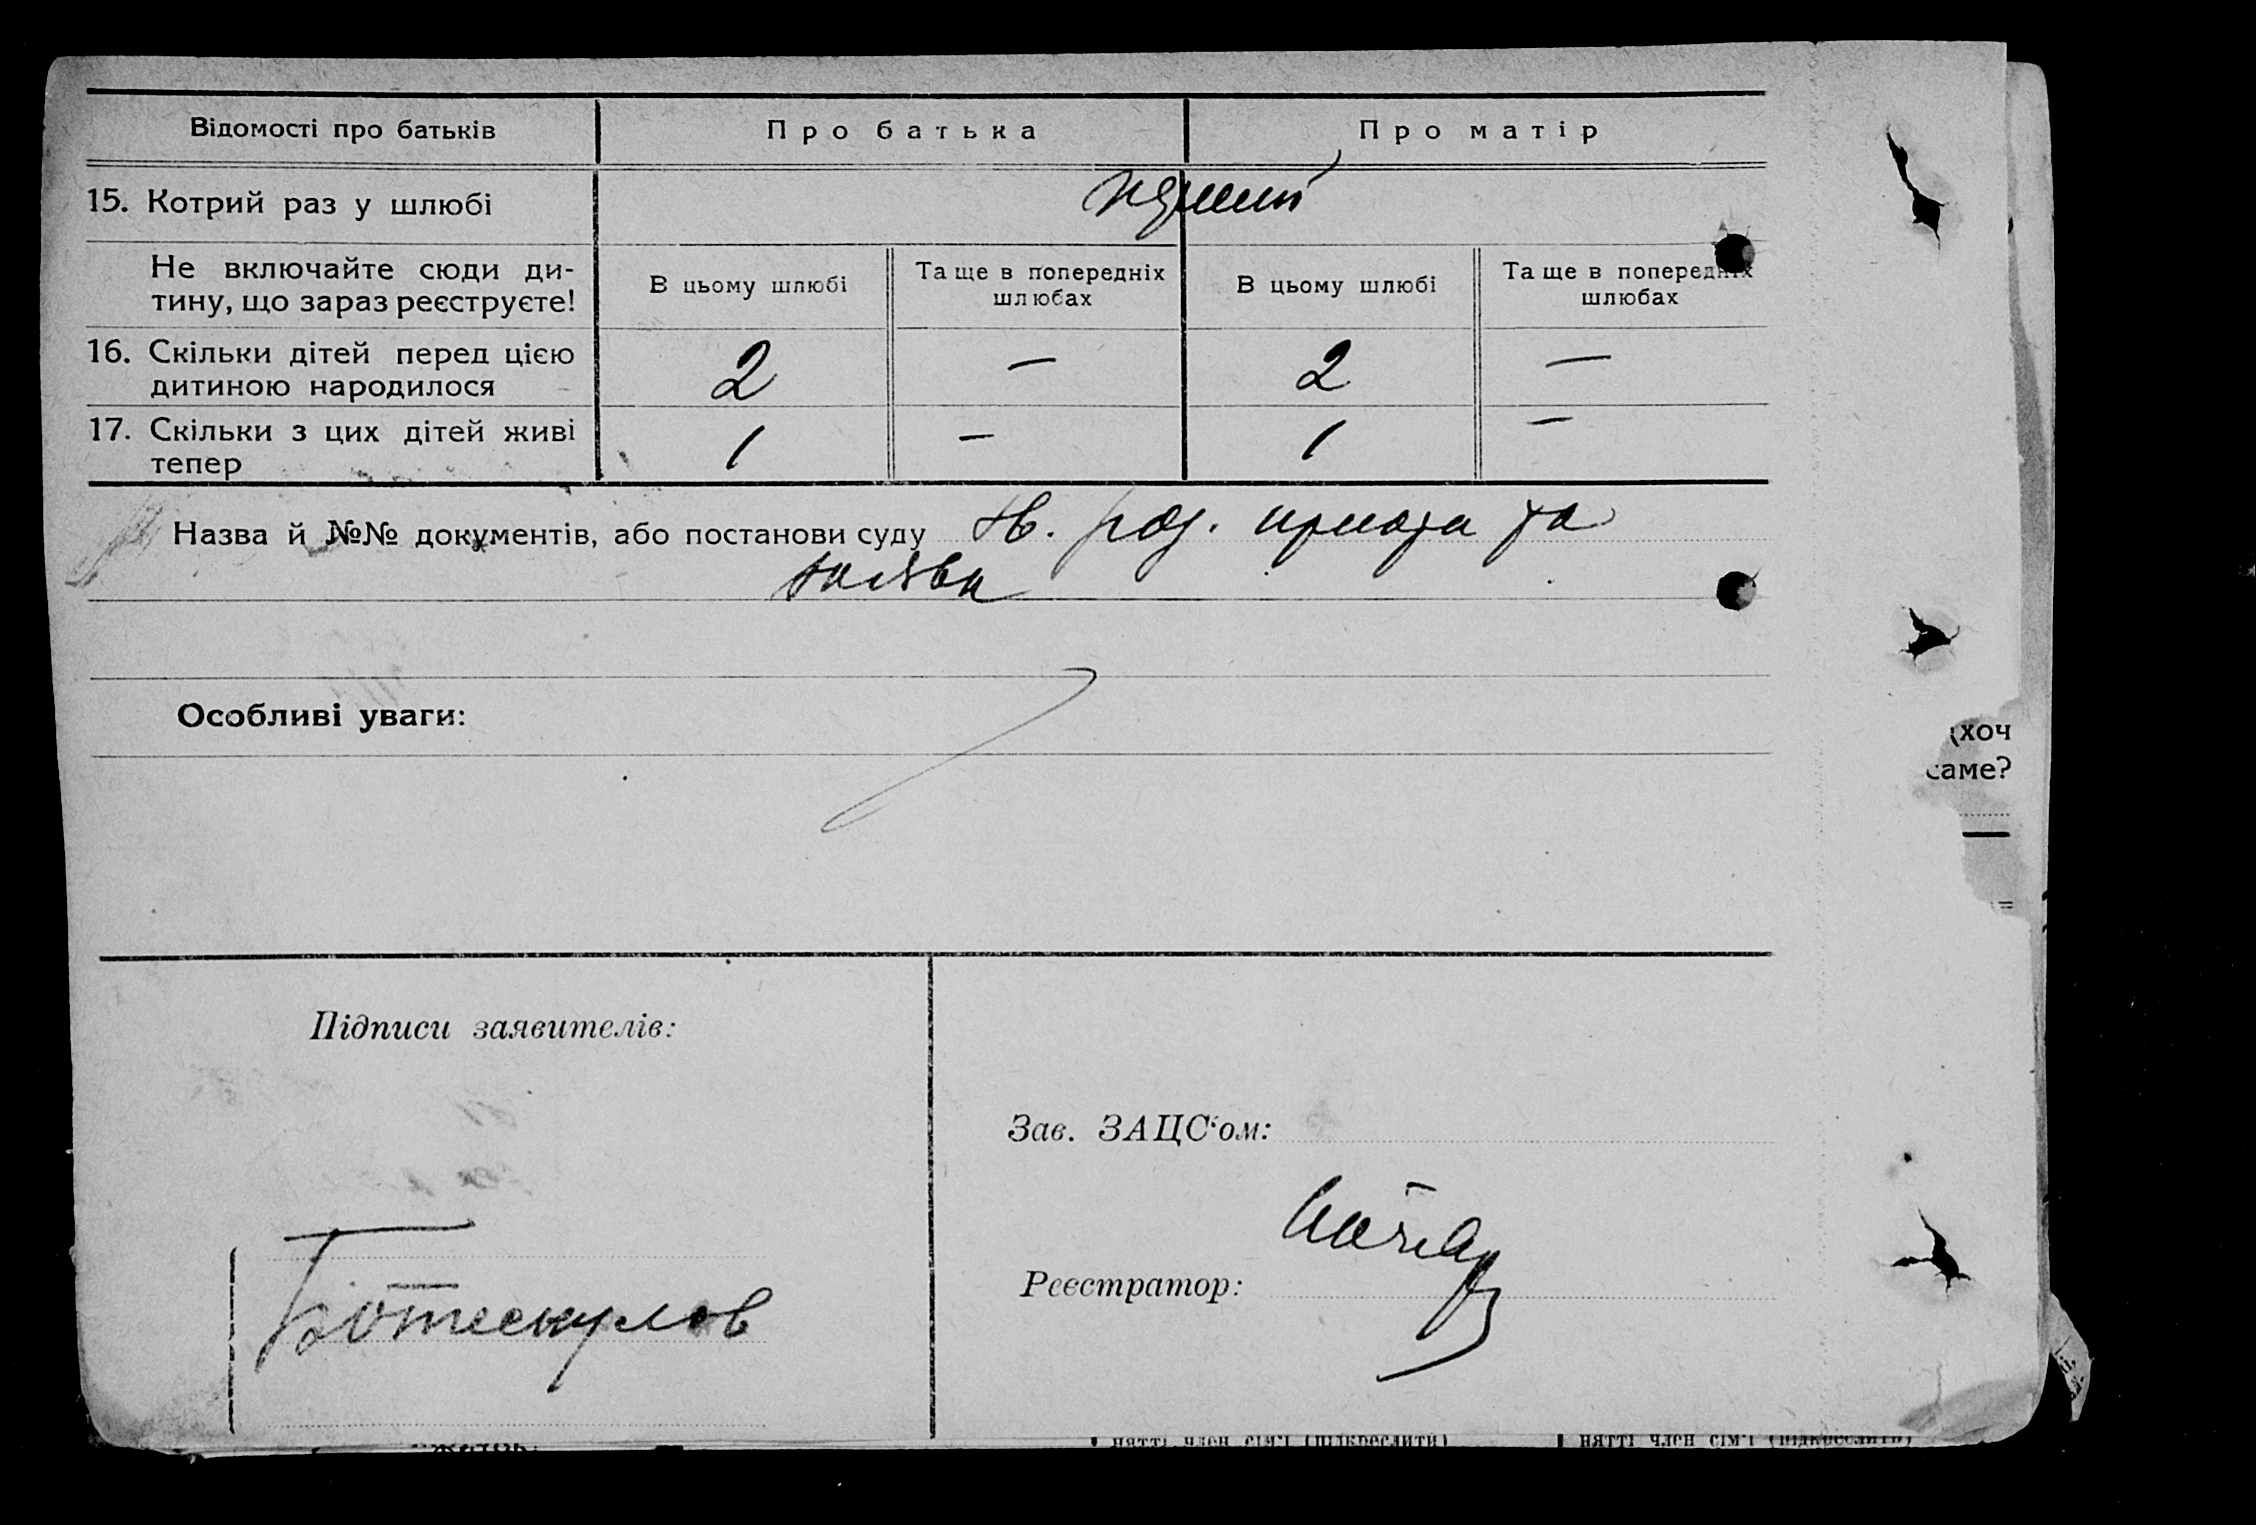 Відомості про батьків
Про батька
Про матір
15. Котрий раз у шлюбі
Не включайте сюди ди-
тину, що зараз реєструєте!
В цьому шлюбі
Та ще в попередніх
шлюбах
В цьому шлюбі
Та ще в попередніх
шлюбах
16. Скільки дітей перед цією
дитиною народилося
2
—
2
—
17. Скільки з цих дітей живі
тепер
1
—
1
—
Назва й №№ документів, або постанови суду
та
заява
Особливі уваги:
(хоч
саме?
Підписи заявителів:
Зав. ЗАЦС'ом:
Реєстратор:
нятті член сім'ї (підкреслити)
нятті член сім'ї (підкреслити)